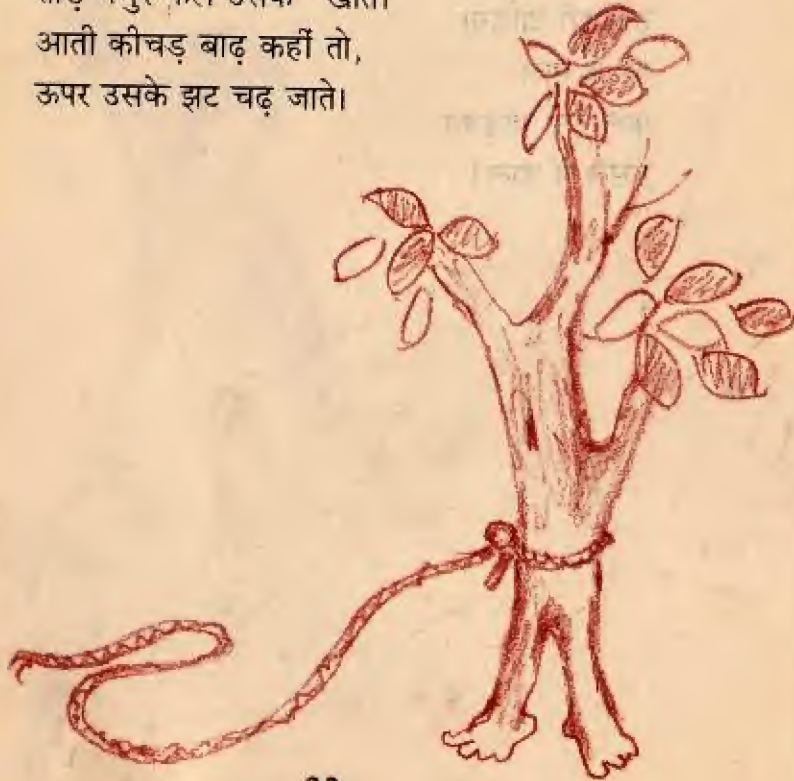 आती कीचड़ बाढ़ कहीं तो,
ऊपर उसके झट चढ़ जाते।